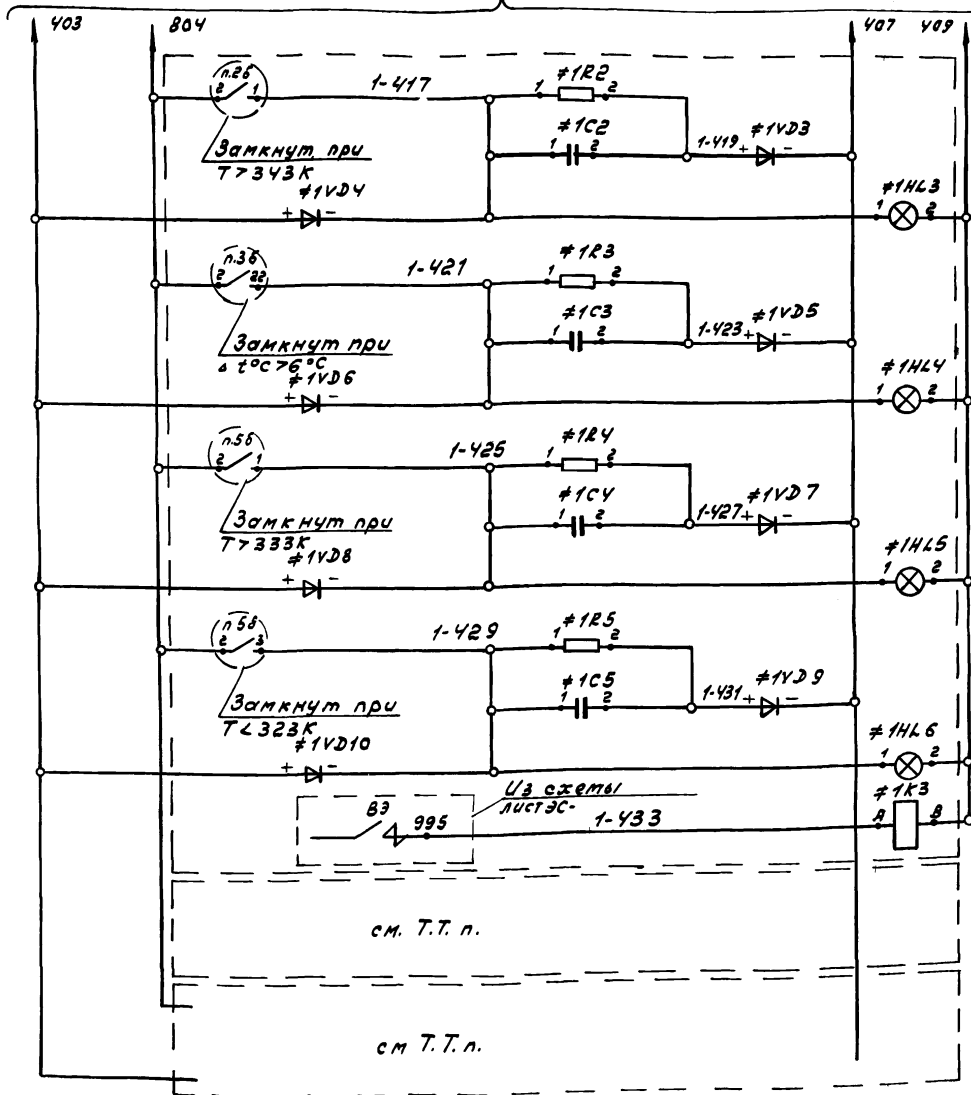 403 804 407 409
п.2б
2 1
1-417
≠1R2
1 2
≠1C2
1 2
1-419
+ ≠1VD3 -
Замкнут при
T>343K
≠1VD4
+ -
≠1HL3
1 2
п.3б
2 22
1-421
≠1R3
1 2
≠1C3
1 2
1-423
+ ≠1VD5 -
Замкнут при
Δ t°C>6°C
≠1VD6
+ -
≠1HL4
1 2
п.5б
2 1
1-425
≠1R4
1 2
≠1C4
1 2
1-427
+ ≠1VD7 -
Замкнут при
T>333K
≠1VD8
+ -
≠1HL5
1 2
п5б
2 3
1-429
≠1R5
1 2
≠1C5
1 2
1-431
+ ≠1VD9 -
Замкнут при
T<323K
≠1VD10
+ -
≠1HL6
1 2
Из схемы
лист ЭС-
ВЭ 995
1-433
≠1К3
A B
см. Т.Т. п.
см Т.Т.п.